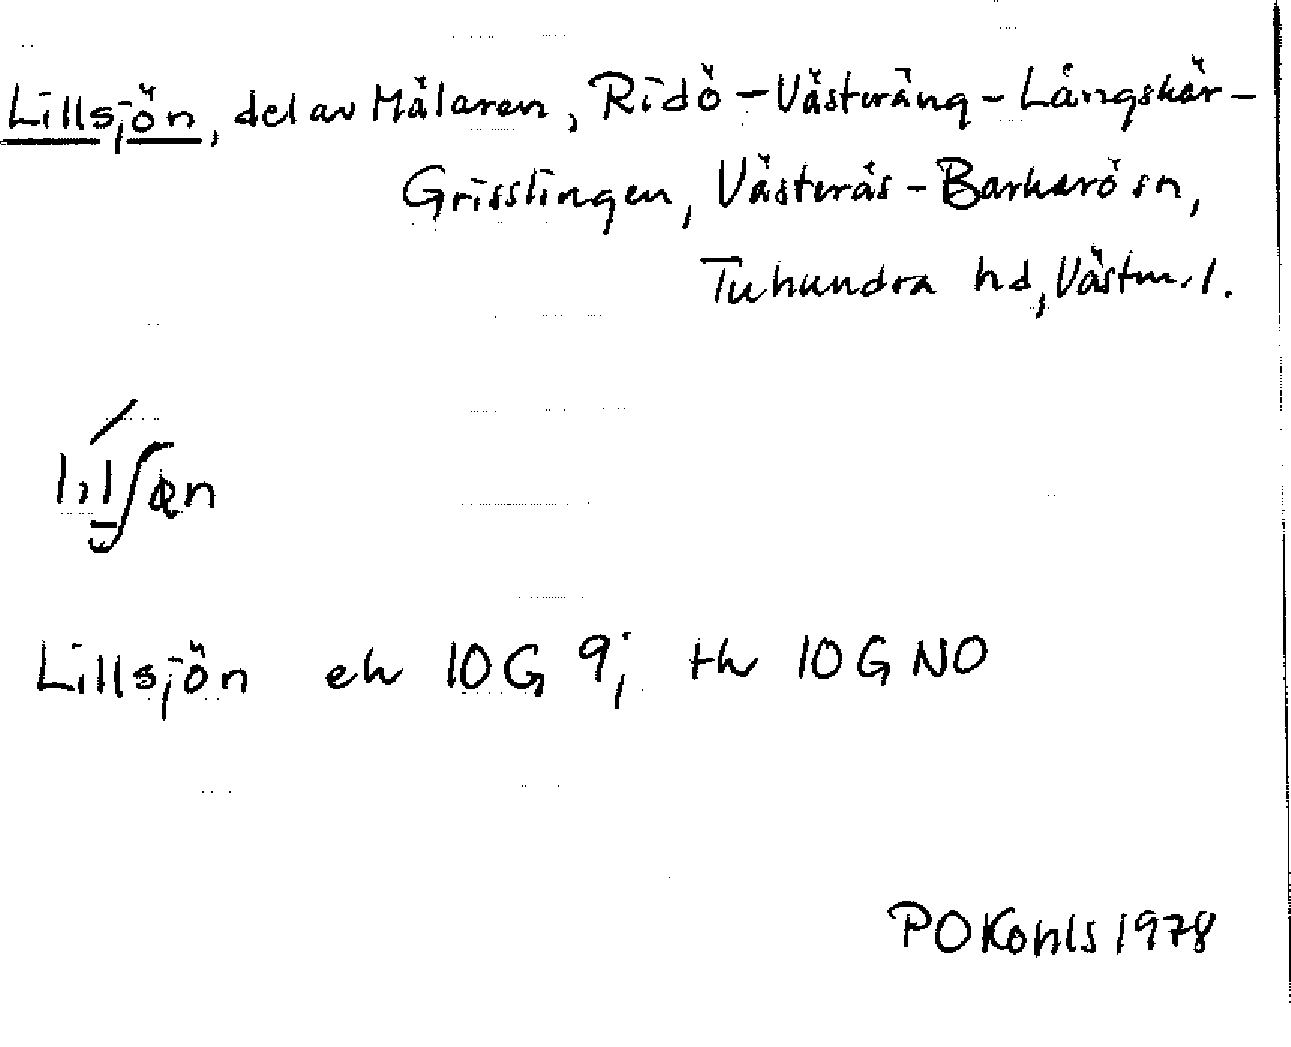 Lillsjön, del av Mälaren, Ridö - Västeräng - Långskär -
Grisslingen, Västerås - Barkarö sn,
Tuhundra hd, Västm. l.
Lillsjön ek 10G 9j tk 10G NO
PO Kohls 1978